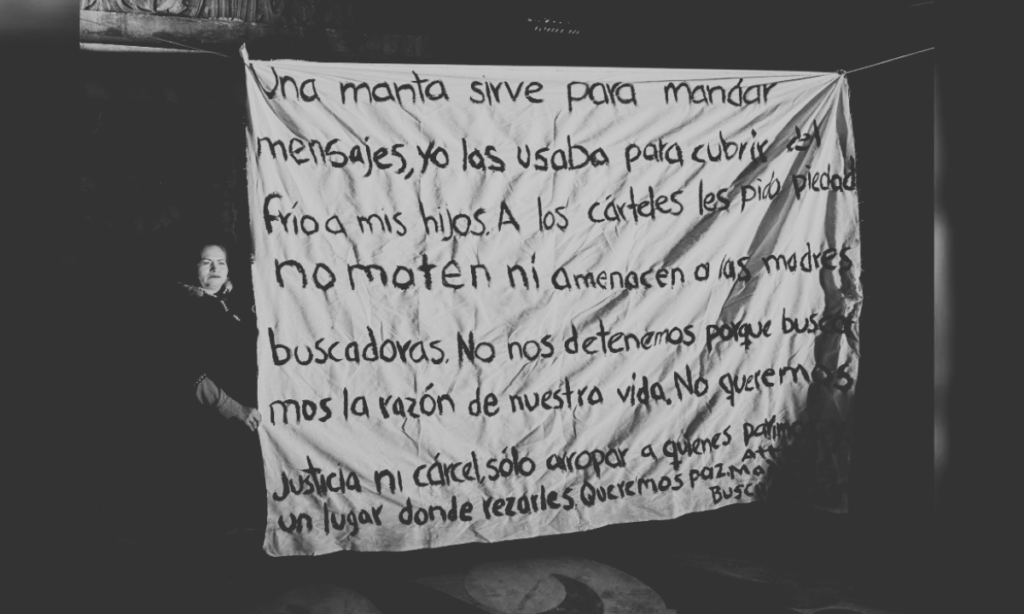 Una manta sirve para mandar
mensajes, yo las usaba para cubrir del
frío a mis hijos. A los cárteles les pido piedad
no maten ni amenacen a las madres
buscadoras. No nos detenemos porque busca
mos la razón de nuestra vida. No queremos
justicia ni cárcel, sólo arropar a quienes parimos
un lugar donde rezarles. Queremos paz.